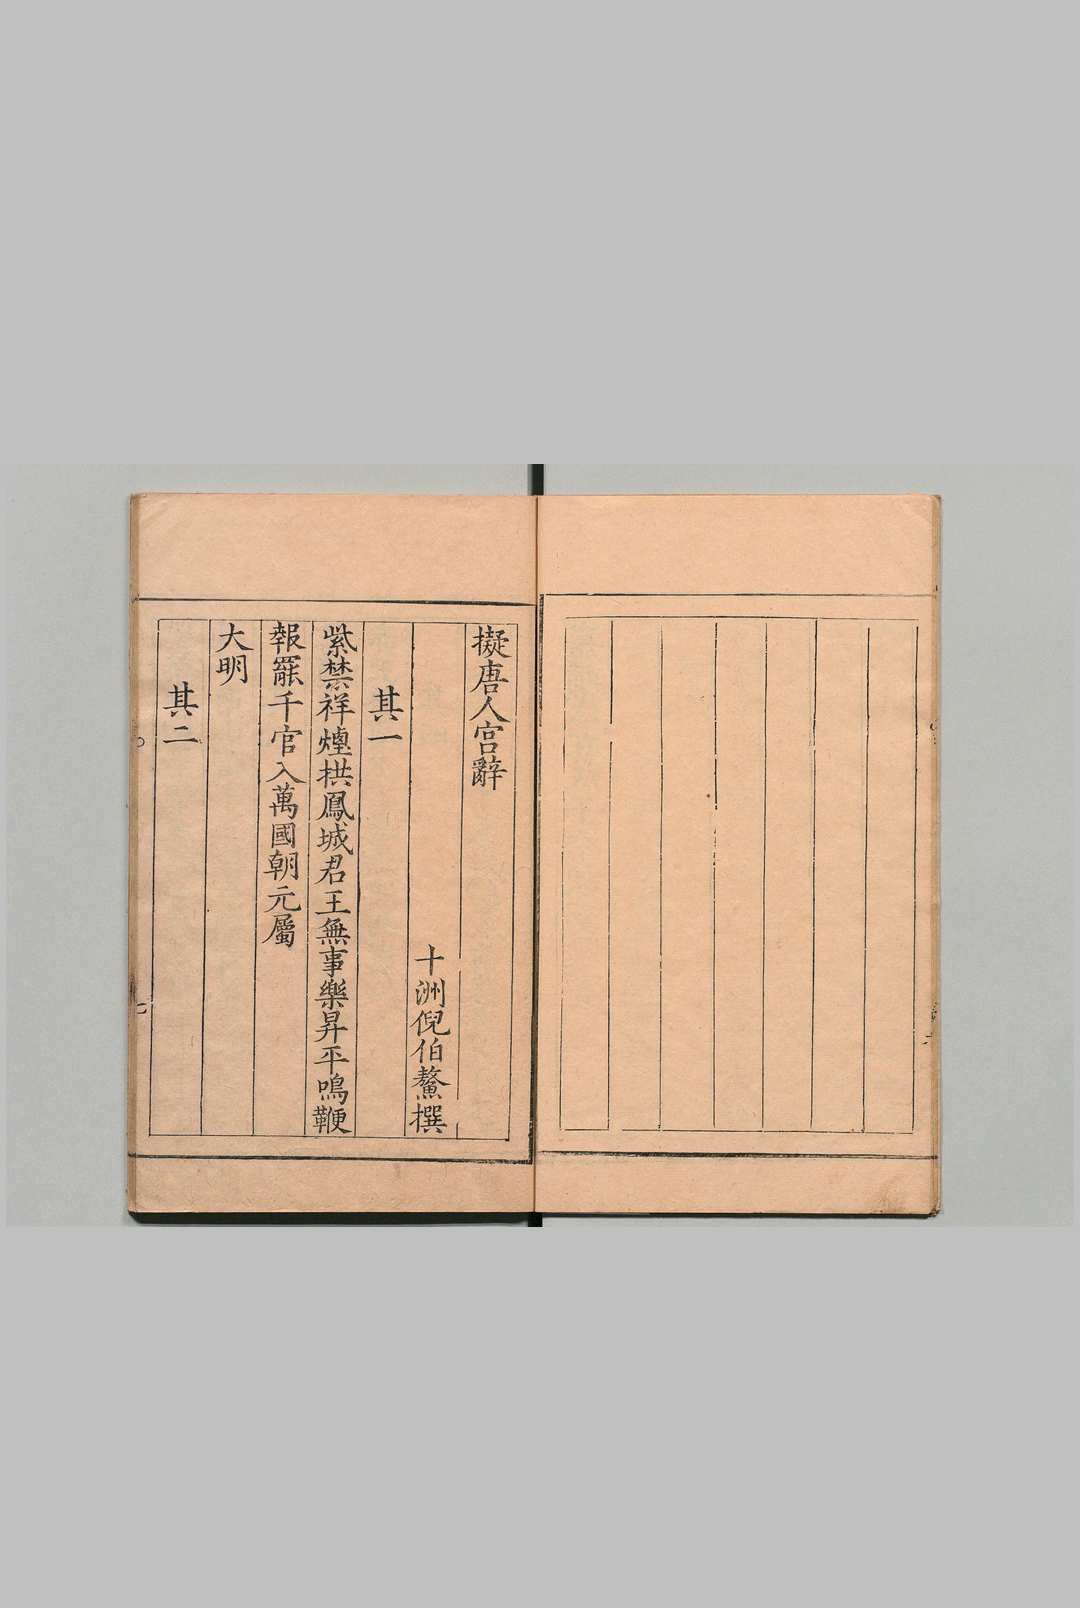 擬唐人宮辭
十洲倪伯鰲撰
其一
紫禁祥煙拱鳳城君王無事樂昇平鳴鞭
報罷千官入萬國朝元屬
大明
其二